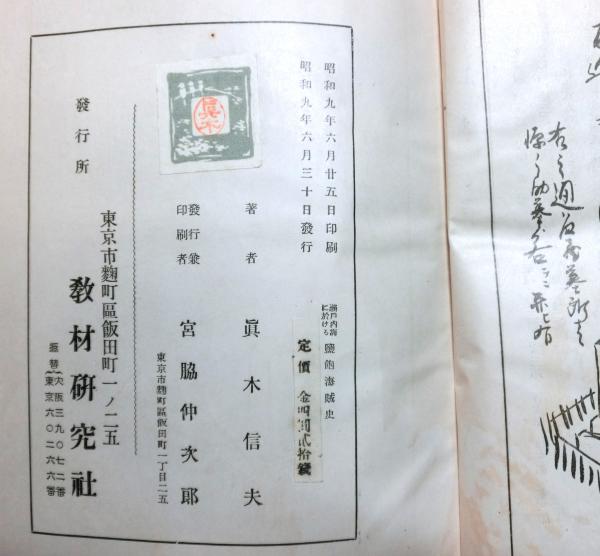 昭和九年六月廿五日印刷
昭和九年六月三十日發行
瀬戸内海に於ける
鹽飽海賊史
定價 金四圓貳拾錢
著者 眞木信夫
眞木
發行兼印刷者 宮脇仲次郎
東京市麴町區飯田町一丁目二五
東京市麴町區飯田町一ノ二五
發行所 敎材硏究社
振替
大阪三九〇七二番
東京六〇二六六番